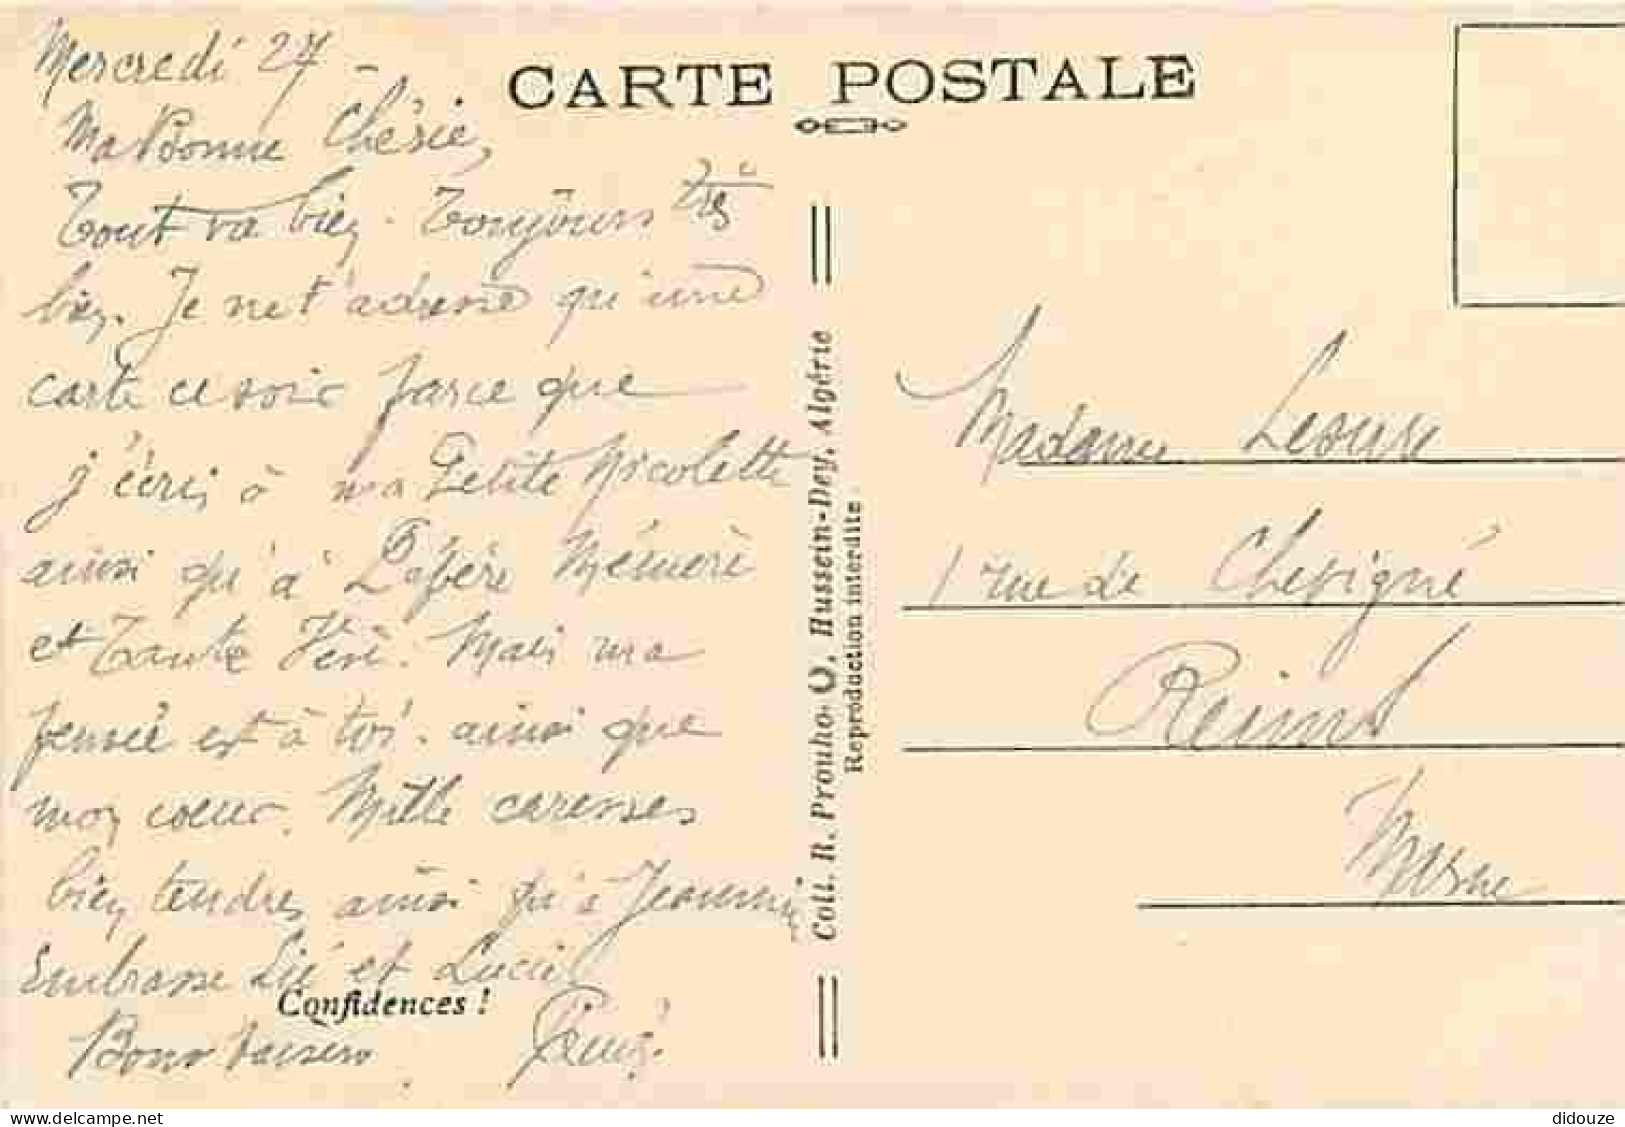 Mercredi 27 -
CARTE POSTALE
Ma Bonne Chérie,
Tout va bien. Toujours très
bien. Je ne t'adresse qu'une
carte ce soir parce que
j'écris à ma Petite Nicolette
ainsi qu'à Pépère Mémère
et Tante Véré. Mais ma
pensée est à toi. ainsi que
mon coeur. Mille caresses
bien tendres ainsi qu'à Jeannine
Embrasse Lié et Lucie
Confidences !
Bons baisers. René.
Coll. R. Prouho-O, Hussein-Dey, Algérie
Reproduction interdite
Madame
1 rue de Chevigné
Reims
Marne
didouze